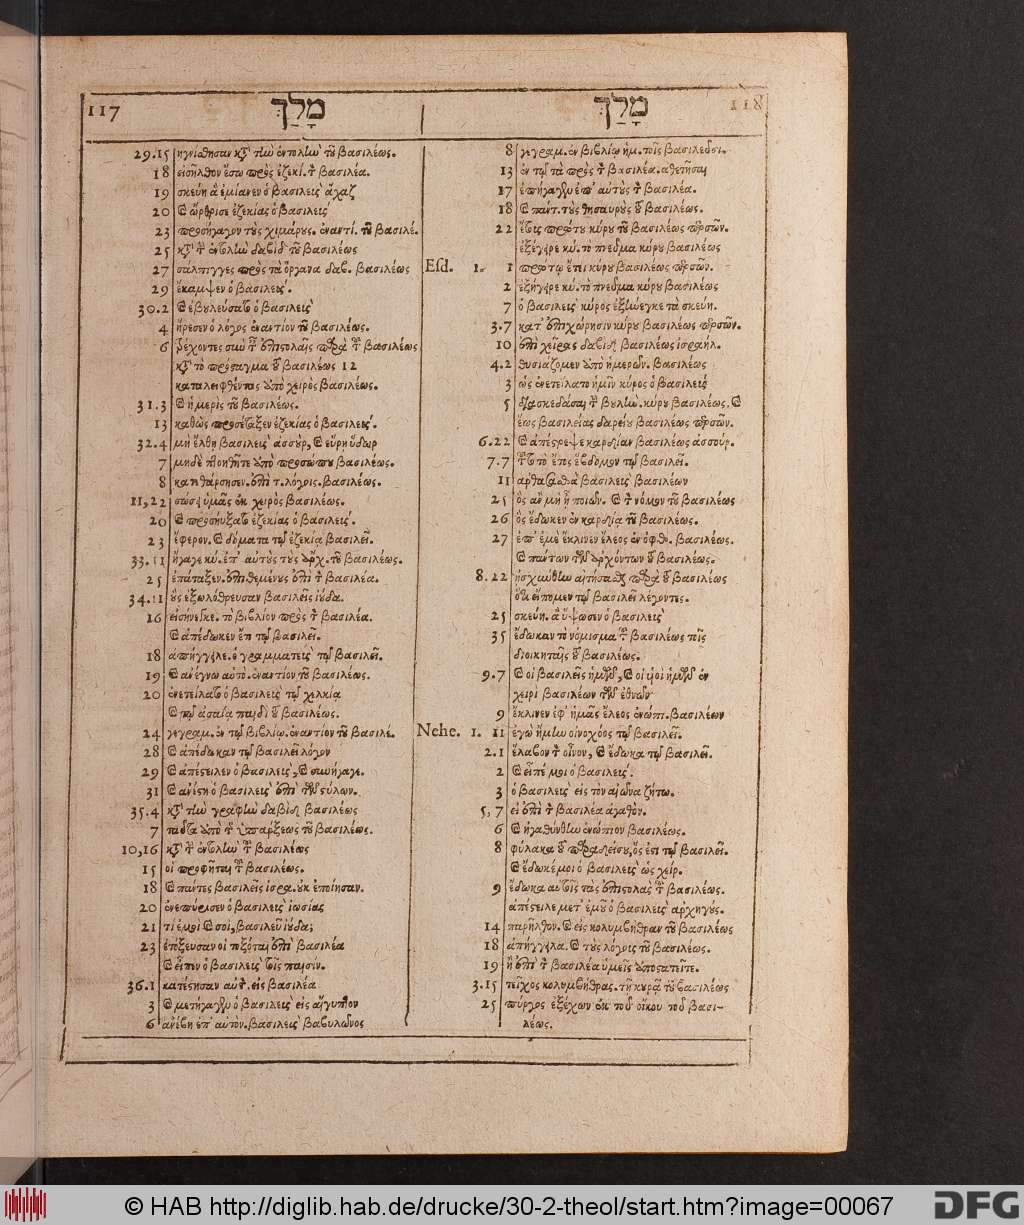 117 מָלַךְ
29.15 ἡγνίσθησαν κτ' τὴν ἐντολὴν τοῦ βασιλέως.
18 εἰσῆλθον ἔσω πρὸς ἐζεκί. τ βασιλέα.
19 σκεύη ἃ ἐμίανεν ὁ βασιλεὺς ἄχαζ
20 ὤρθρισε ἐζεκίας ὁ βασιλεὺς
23 προσήγαγον τοὺς χιμάρους. ἐναντί. τοῦ βασιλέ.
25 δαβὶδ τοῦ βασιλέως
27 σάλπιγγες πρὸς τὰ ὄργανα δαβ. βασιλέως
29 ἔκαμψεν ὁ βασιλεύς.
30.2 ὁ βασιλεὺς
4 ἤρεσεν ὁ λόγος ἐναντίον τοῦ βασιλέως.
6 βασιλέως
τὸ πρόσταγμα τοῦ βασιλέως 12
καταλειφθέντας ὑπὸ χειρὸς βασιλέως.
31.3 ἡ μερὶς τοῦ βασιλέως.
13 καθὼς προσέταξεν ἐζεκίας ὁ βασιλεύς.
32.4 μὴ ἔλθῃ βασιλεὺς ἀσσοὺρ, εὕρῃ ὕδωρ
7 μηδὲ πτοηθῆτε ἀπὸ προσώπου βασιλέως.
8 λόγοις. βασιλέως.
11,22 ὑμᾶς ἐκ χειρὸς βασιλέως.
20 προσηύξατο ἐζεκίας ὁ βασιλεύς.
23 ἔφερον. δόματα τῷ ἐζεκίᾳ βασιλεῖ.
33.11 ἤγαγε κύ. ἐπ' αὐτοὺς τοὺς ἄρχ. τοῦ βασιλέως.
25 ἐπάταξεν. βασιλέα.
34.11 οὓς ἐξωλόθρευσαν βασιλεῖς ἰούδα.
16 εἰσήνεγκε. τὸ βιβλίον πρὸς τ βασιλέα.
ἀπέδωκεν ἔτι τῷ βασιλεῖ.
18 ἀπήγγειλε. ὁ γραμματεὺς τῷ βασιλεῖ.
19 ἀνέγνω αὐτὸ. ἐναντίον τοῦ βασιλέως.
20 ἐνετείλατο ὁ βασιλεὺς τῷ χελκίᾳ
τῷ ἀσαΐᾳ παιδὶ τοῦ βασιλέως.
24 γεγραμ. ἐν τῷ βιβλίῳ. ἐναντίον τοῦ βασιλέ.
28 ἀπέδωκαν τῷ βασιλεῖ λόγον
29 ἀπέστειλεν ὁ βασιλεὺς, συνήγαγε.
31 ἀνέστη ὁ βασιλεὺς ἐπὶ τὸν στύλον.
35.4 τὴν γραφὴν δαβὶδ βασιλέως
7 ταῦτα ἀπὸ τ ὑπάρξεως τοῦ βασιλέως.
10,16 βασιλέως
15 οἱ προφῆται τοῦ βασιλέως.
18 πάντες βασιλεῖς ἰσρα. οὐκ ἐποίησαν.
20 ἐνεπύρισεν ὁ βασιλεὺς ἰωσίας
21 τί ἐμοὶ σοὶ, βασιλεῦ ἰούδα;
23 ἐτόξευσαν οἱ τοξόται ἐπὶ βασιλέα
εἶπεν ὁ βασιλεὺς τοῖς παισίν.
36.1 κατέστησαν αὐτ. εἰς βασιλέα
3 μετήγαγεν ὁ βασιλεὺς εἰς αἴγυπτον
6 ἀνέβη ἐπ' αὐτὸν. βασιλεὺς βαβυλῶνος
מָלַךְ 118
8 γεγραμ. ἐν βιβλίῳ ἡμ. τοῖς βασιλεῦσι.
13 ἐν τῷ τὰ πρὸς τ βασιλέα. ἀθετῆσαι
17 ἐπήγαγεν ἐπ' αὐτοὺς τ βασιλέα.
18 παντ. τοὺς θησαυροὺς τοῦ βασιλέως.
22 ἔτους πρώτου κύρου τοῦ βασιλέως περσῶν.
ἐξέγειρε κύ. τὸ πνεῦμα κύρου βασιλέως
Esd. 1. 1 πρώτῳ ἔτει κύρου βασιλέως περσῶν.
2 ἐξήγειρε κύ. τὸ πνεῦμα κύρου βασιλέως
7 ὁ βασιλεὺς κῦρος ἐξήνεγκε τὰ σκεύη.
3.7 κατ' ἐπιχώρησιν κύρου βασιλέως περσῶν.
10 ἐπὶ χεῖρας δαβὶδ βασιλέως ἰσραήλ.
4.2 θυσιάζομεν ἀπὸ ἡμερῶν. βασιλέως
3 ὡς ἐνετείλατο ἡμῖν κῦρος ὁ βασιλεὺς
5 διασκεδάσαι τ βουλὴν. κύρου βασιλέως,
ἕως βασιλείας δαρείου βασιλέως περσῶν.
6.22 ἀπέστρεψε καρδίαν βασιλέως ἀσσούρ.
7.7 ἔτος ἕβδομον τῷ βασιλεῖ.
11 ἀρθασασθὰ βασιλεὺς βασιλέων
25 ὃς ἂν μὴ ᾖ ποιῶν. τ νόμον τοῦ βασιλέως
26 ὃς ἔδωκεν ἐν καρδίᾳ τοῦ βασιλέως.
27 ἐπ' ἐμὲ ἔκλινεν ἔλεος ἐν ὀφθ. βασιλέως.
πάντων τῶν ἀρχόντων τοῦ βασιλέως.
8.22 ᾐσχύνθην αἰτήσασθαι παρὰ τοῦ βασιλέως
ὅτι εἴπομεν τῷ βασιλεῖ λέγοντες.
25 σκεύη. ἃ ὕψωσεν ὁ βασιλεὺς
35 ἔδωκαν τὸ νόμισμα τοῦ βασιλέως τοῖς
διοικηταῖς τοῦ βασιλέως.
9.7 οἱ βασιλεῖς ἡμῶν, οἱ υἱοὶ ἡμῶν ἐν
χειρὶ βασιλέων τῶν ἐθνῶν
9 ἔκλινεν ἐφ' ἡμᾶς ἔλεος ἐνώπι. βασιλέων
Nehe. 1. 11 ἐγὼ ἤμην οἰνοχόος τῷ βασιλεῖ.
2.1 ἔλαβον τ οἶνον, ἔδωκα τῷ βασιλεῖ.
2 εἶπέ μοι ὁ βασιλεύς.
3 ὁ βασιλεὺς εἰς τὸν αἰῶνα ζήτω.
5,7 εἰ ἐπὶ τ βασιλέα ἀγαθὸν.
6 ἠγαθύνθην ἐνώπιον βασιλέως.
8 φύλακα τοῦ παραδείσου, ὅς ἐστι τῷ βασιλεῖ.
ἔδωκέ μοι ὁ βασιλεὺς ὡς χείρ.
9 ἔδωκα αὐτοῖς τὰς ἐπιστολὰς τοῦ βασιλέως.
ἀπέστειλε μετ' ἐμοῦ ὁ βασιλεὺς ἀρχηγοὺς.
14 παρῆλθον. εἰς κολυμβήθραν τοῦ βασιλέως
18 ἀπήγγειλα. τοὺς λόγοις τοῦ βασιλέως.
19 ἢ ἐπὶ τ βασιλέα ὑμεῖς ἀποστατεῖτε.
3.15 τεῖχος κολυμβήθρας. τῇ κουρᾷ τοῦ βασιλέως
25 πύργος ἐξέχων ἐκ τοῦ οἴκου τοῦ βασι-
λέως.
© HAB http://diglib.hab.de/drucke/30-2-theol/start.htm?image=00067
DFG